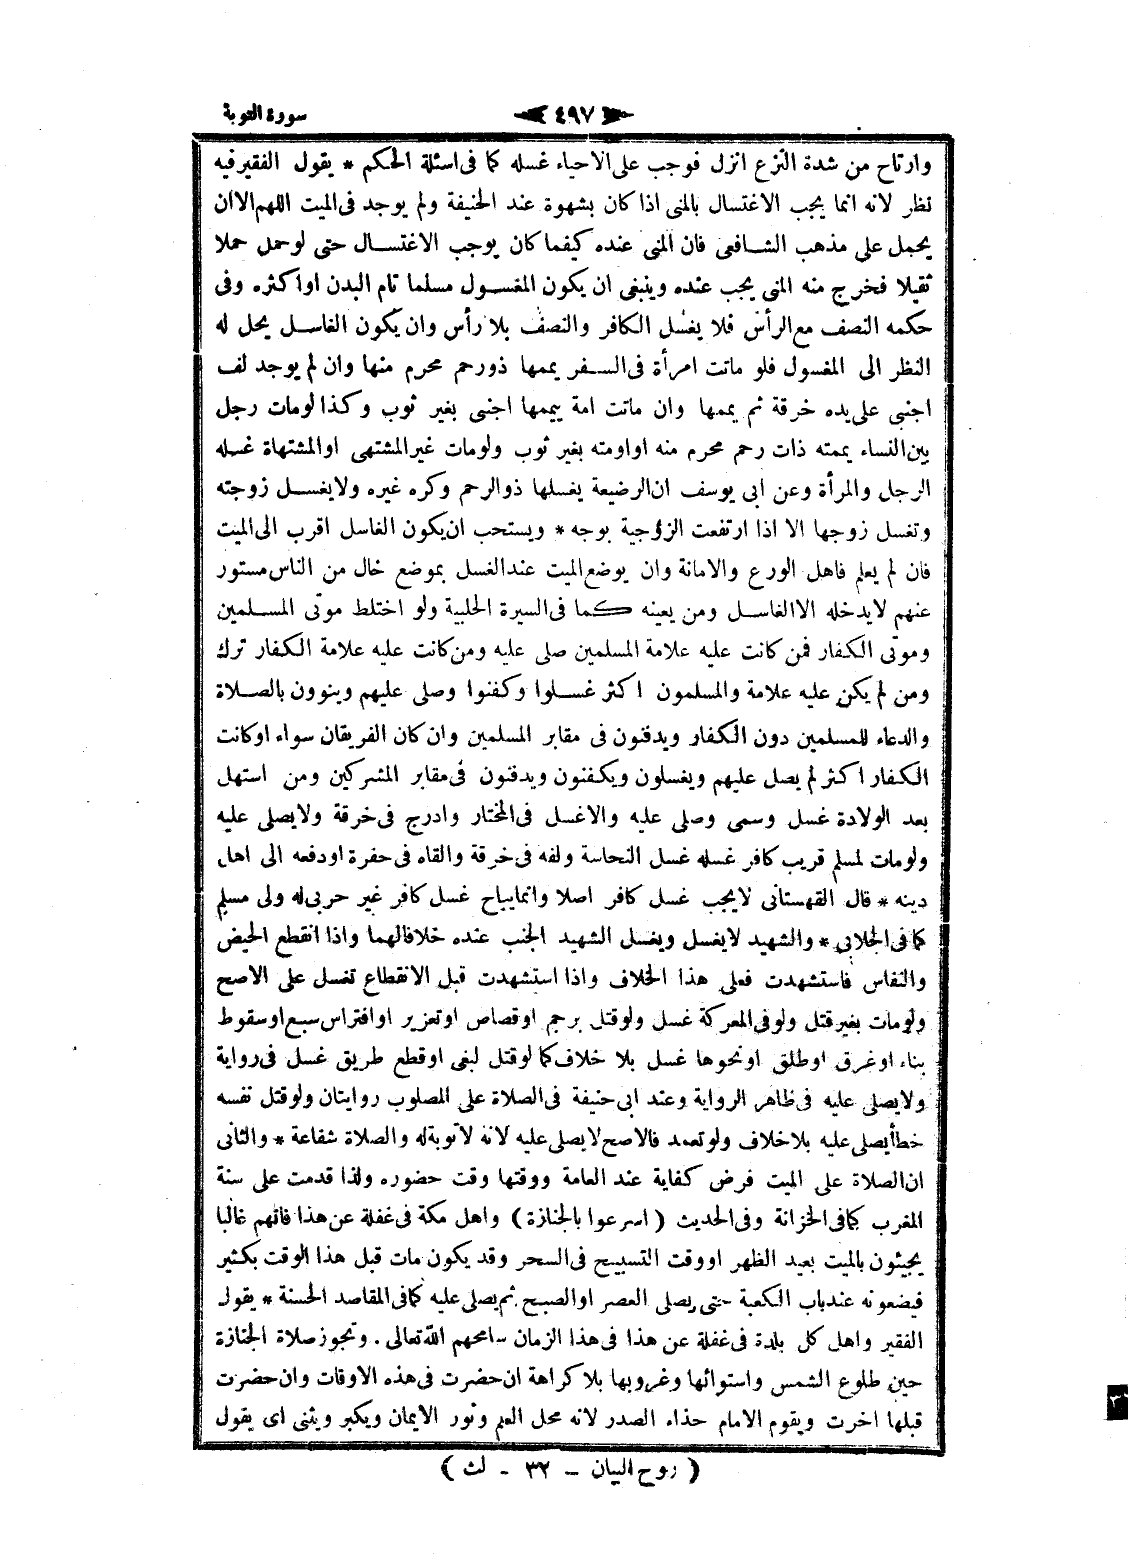 سورة التوبة
٤٩٧
وارتاح من شدة النزع انزل فوجب على الاحياء غسله كما فى اسئلة الحكم * يقول الفقير فيه
نظر لانه انما يجب الاغتسال بالمنى اذا كان بشهوة عند الحنيفة ولم يوجد فى الميت اللهم الا ان
يحمل على مذهب الشافعى فان المنى عنده كيفما كان يوجب الاغتسال حتى لو حمل حملا
ثقيلا فخرج منه المنى يجب عنده وينبغى ان يكون المغسول مسلما تام البدن او اكثره وفى
حكمه النصف مع الرأس فلا يغسل الكافر والنصف بلا رأس وان يكون الغاسل يحل له
النظر الى المغسول فلو ماتت امرأة فى السفر يممها ذو رحم محرم منها وان لم يوجد لف
اجنبى على يده خرقة ثم يممها وان ماتت امة ييممها اجنبى بغير ثوب وكذا لو مات رجل
بين النساء يممته ذات رحم محرم منه او امته بغير ثوب ولو مات غير المشتهى او المشتهاة غسله
الرجل والمرأة وعن ابى يوسف ان الرضيعة يغسلها ذو الرحم وكره غيره ولا يغسل زوجته
وتغسل زوجها الا اذا ارتفعت الزوجية بوجه * ويستحب ان يكون الغاسل اقرب الى الميت
فان لم يعلم فاهل الورع والامانة وان يوضع الميت عند الغسل بموضع خال من الناس مستور
عنهم لا يدخله الا الغاسل ومن يعينه كما فى السيرة الحلبية ولو اختلط موتى المسلمين
وموتى الكفار فمن كانت عليه علامة المسلمين صلى عليه ومن كانت عليه علامة الكفار ترك
ومن لم يكن عليه علامة والمسلمون اكثر غسلوا وكفنوا وصلى عليهم وينوون بالصلاة
والدعاء للمسلمين دون الكفار ويدفنون فى مقابر المسلمين وان كان الفريقان سواء او كانت
الكفار اكثر لم يصل عليهم ويغسلون ويكفنون ويدفنون فى مقابر المشركين ومن استهل
بعد الولادة غسل وسمى وصلى عليه والا غسل فى المختار وادرج فى خرقة ولا يصلى عليه
ولو مات لمسلم قريب كافر غسله غسل النجاسة ولفه فى خرقة والقاه فى حفرة او دفعه الى اهل
دينه * قال القهستانى لا يجب غسل كافر اصلا وانما يباح غسل كافر غير حربى له ولى مسلم
كما فى الجلابى * والشهيد لا يغسل ويغسل الشهيد الجنب عنده خلافا لهما واذا انقطع الحيض
والنفاس فاستشهدت فعلى هذا الخلاف واذا استشهدت قبل الانقطاع تغسل على الاصح
ولو مات بغير قتل ولو فى المعركة غسل ولو قتل برجم او قصاص او تعزير او افتراس سبع او سقوط
بناء او غرق او طلق او نحوها غسل بلا خلاف كما لو قتل لبغى او قطع طريق غسل فى رواية
ولا يصلى عليه فى ظاهر الرواية وعند ابى حنيفة فى الصلاة على المصلوب روايتان ولو قتل نفسه
خطأ يصلى عليه بلا خلاف ولو تعمد فالاصح لا يصلى عليه لانه لا توبة له والصلاة شفاعة * والثانى
ان الصلاة على الميت فرض كفاية عند العامة ووقتها وقت حضوره ولذا قدمت على سنة
المغرب كما فى الخزانة وفى الحديث ( اسرعوا بالجنازة ) واهل مكة فى غفلة عن هذا فانهم غالبا
يجيئون بالميت بعيد الظهر او وقت التسبيح فى السحر وقد يكون مات قبل هذا الوقت بكثير
فيضعونه عند باب الكعبة حتى يصلى العصر او الصبح ثم يصلى عليه كما فى المقاصد الحسنة * يقول
الفقير واهل كل بلدة فى غفلة عن هذا فى هذا الزمان سامحهم الله تعالى . وتجوز صلاة الجنازة
حين طلوع الشمس واستوائها وغروبها بلا كراهة ان حضرت فى هذه الاوقات وان حضرت
قبلها اخرت ويقوم الامام حذاء الصدر لانه محل العلم ونور الايمان ويكبر ويثنى اى يقول
( روح البيان - ٣٢ - لث )